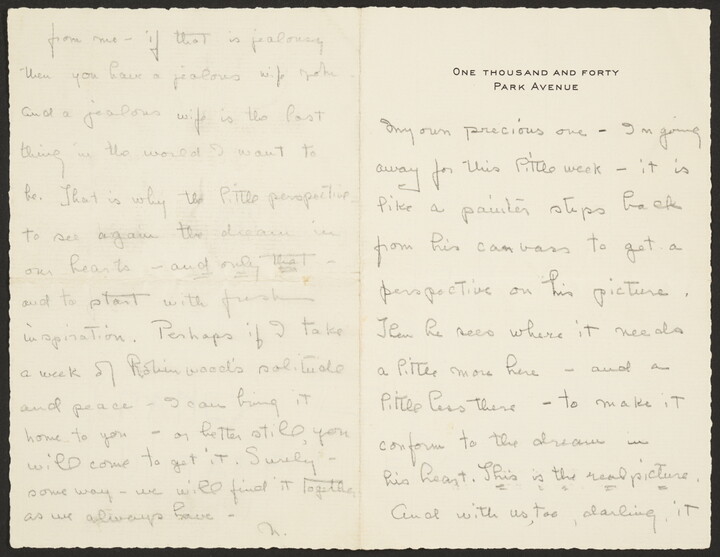 ONE THOUSAND AND FORTY
PARK AVENUE
My own precious one – I'm going
away for this little week – it is
like a painter steps back
from his canvass to get a
perspective on his picture.
Then he sees where it needs
a little more here – and a
little less there – to make it
conform to the dream in
his heart. This is the real picture.
And with us, too, darling, it
from me – if that is jealousy
then you have a jealous wife
and a jealous wife is the last
thing in the world I want to
be. That is why the little perspective
to see again the dream in
our hearts – and only that –
and to start with fresh
inspiration. Perhaps if I take
a week of Robinwood's solitude
and peace – I can bring it
home to you – or better still, you
will come to get it. Surely –
some way – we will find it together
as we always have –
N.